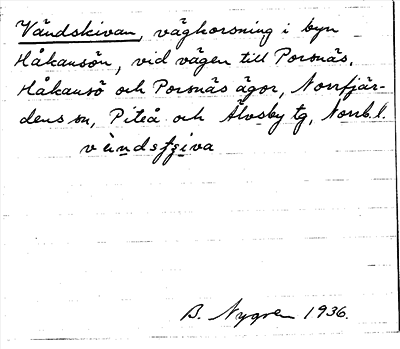 Vändskivan, vägkorsning i byn
Håkansön, vid vägen till Porsnäs.
Håkansö och Porsnäs ägor, Norrfjär-
dens sn, Piteå och Älvsby tg, Norrb. l.
B. Nygren 1936.